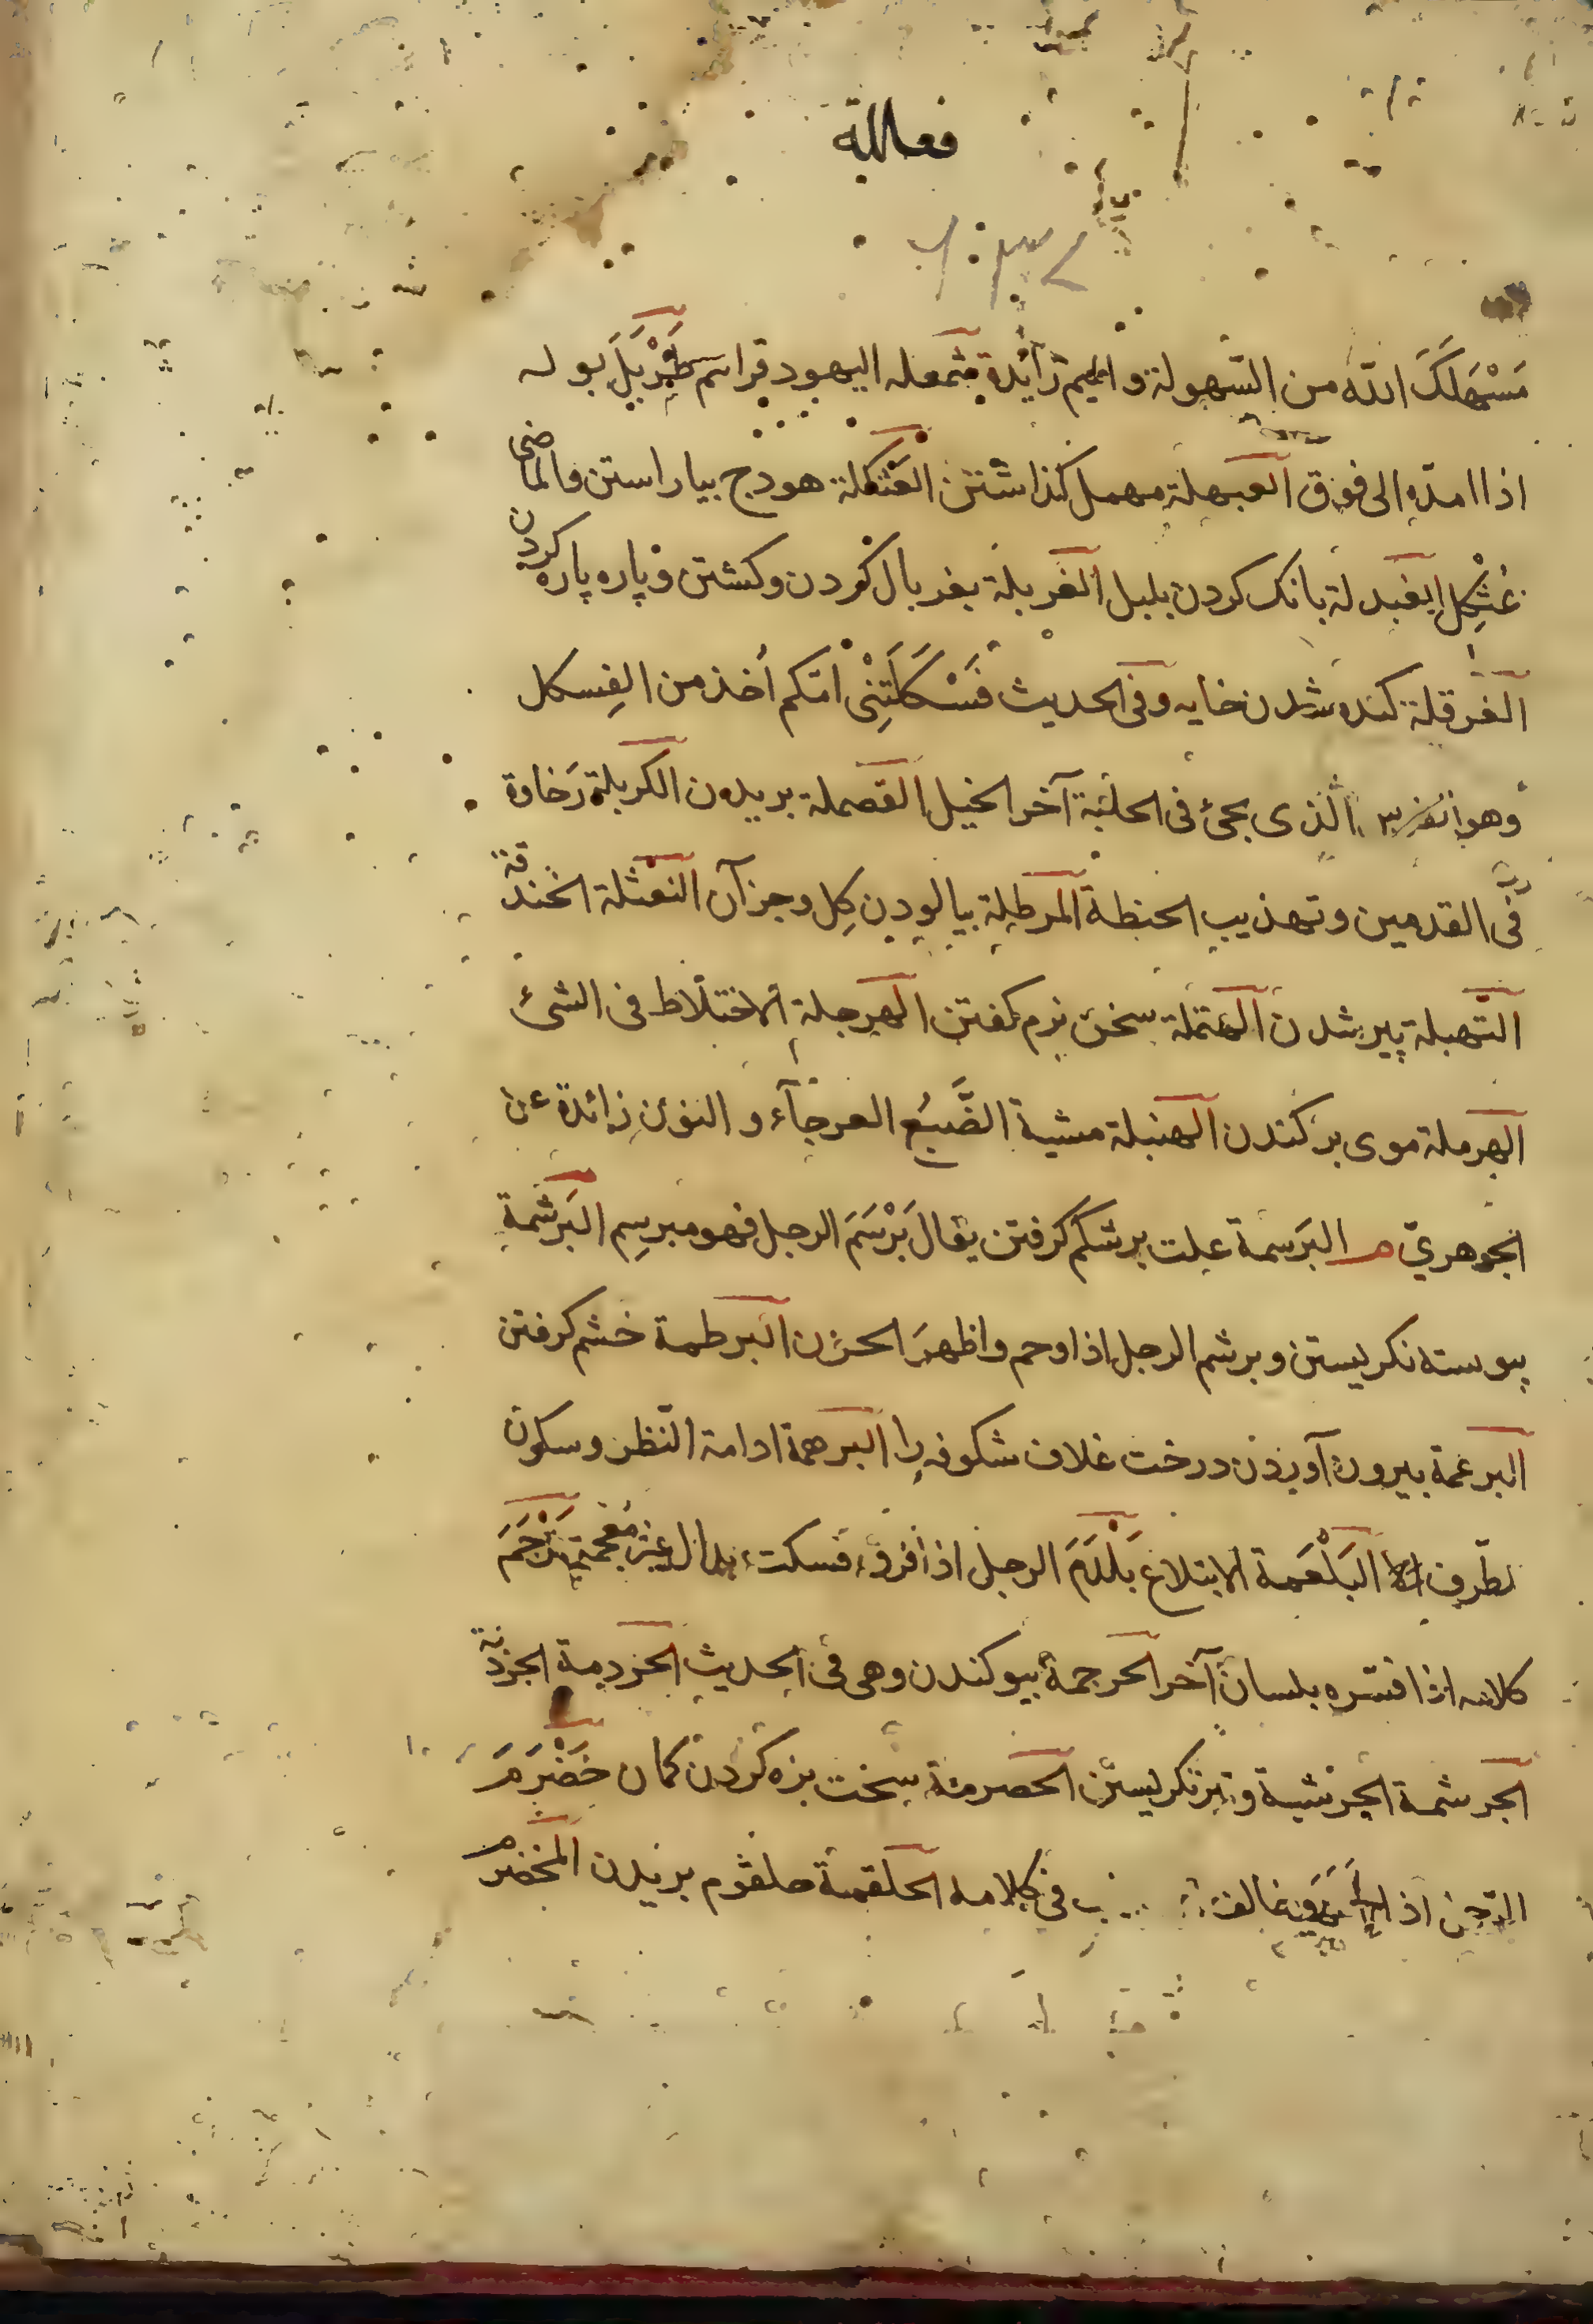 فعاللة
سَمْهَلَكَ الله من السّهولة والميم زائدة شمعله اليهود قراءتهم طَرْبَلَ بوله
اذا امدّه الى فوق العبهلة مهمل كذاشتن العثكلة هودج بياراستن والماضى
عثكل العندلة بانك كردن بلبل الغربلة بغربال كردن وكشتن و پاره پاره كردن
الغرقلة كنده شدن خايه وفى الحديث فَسْكَلَتِنْى امّكم أخذ من الفِسكل
وهو الّذى يجئ فى الحلبة آخر الخيل القصملة بريدن الكربلة رَخاوة
فى القدمين وتهذيب الحنطة المرطلة بيالودن كِل وجز آن النعثلة الخندقة
النّهبلة پير شدن الهتملة سخن نرم كفتن الهرجلة الاختلاط فى الشئ
الهرملة موى بركندن الهنبلة مشية الضَّبُع العرجآء والنون زائدة عن
الجوهريّ م البَرسمة علت برشكم كرفتن يقال بَرْسَمَ الرجل فهو مبرسِم البَرشمة
پيوسته نكريستن وبرشم الرجل اذا وحم واظهرَ الحزن البرطمة خشم كرفتن
البرعمة بيرون آوردن درخت غلاف شكوفه را البرهمة ادامة النّظر وسكون
لطّرف البَلْعَمة الابتلاع بَلْدَمَ الرجل اذا فرق فسكت بدال غير معجمة تَرْجَمَ
كلامه اذا فسّره بلسان آخر الحرجمة بيوكندن وهى فى الحديث الخردمة الجردبة
الجرشمة الجرشبة وتيز نكريستن الحصرمة سخت بزه كردن كمان حَضْرَمَ
الرّجل اذا فى كلامه الحلقمة حلقوم بريدن المخضرم